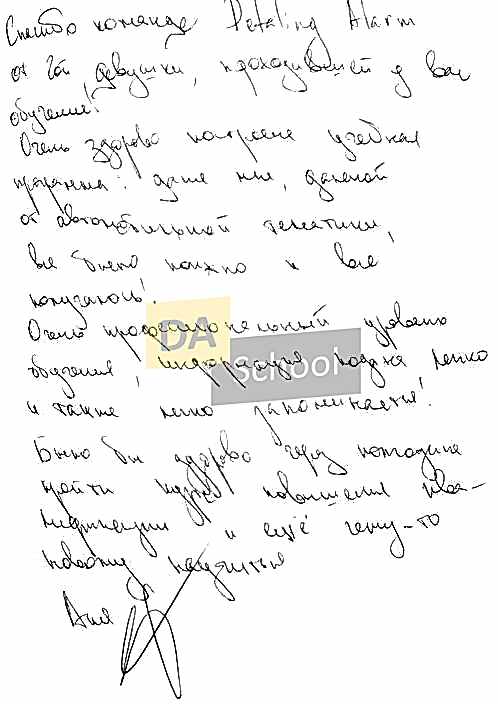 Спасибо команде Detailing Alarm
от 2ой девушки, проходившей у вас
обучение!
Очень здорово построена учебная
программа: даже мне, далекой
от автомобильной тематики,
все было понятно и все
получалось!
Очень профессиональный уровень
обучения, информация подана легко
и также легко запоминается!
Было бы здорово через полгодика
пройти курсы повышения квали-
фикации и ещё чему-то
новому научиться
Аня
DA
School